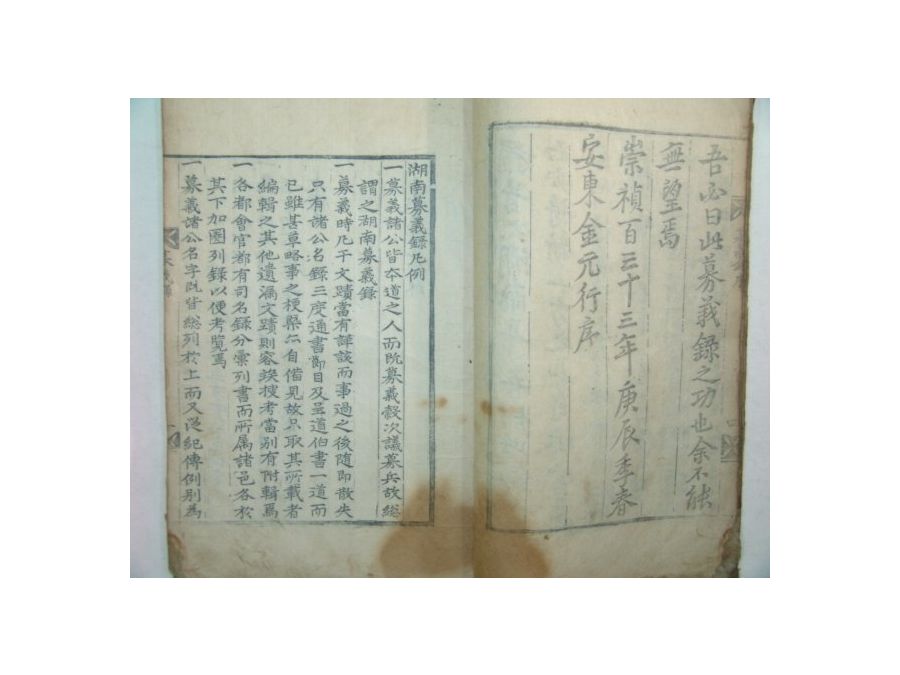 吾必曰此募義錄之功也余不能
無望焉
崇禎百三十三年庚辰季春
安東金元行序
湖南募義錄凡例
一募義諸公皆本道之人而旣募義穀次議募兵故總
謂之湖南募義錄
一募義時凡干文蹟當有詳該而事過之後隨即散失
只有諸公名錄三度通書節目及呈道伯書一道而
已雖甚草略事之梗槩亦自備見故只取其所載者
編輯之其他遺漏文蹟則容竢搜考當別有附輯焉
一各都會官都有司名錄分彙列書而所属諸邑各於
其下加圈列錄以便考覽焉
一募義諸公名字旣皆総列於上而又從紀傳例別為